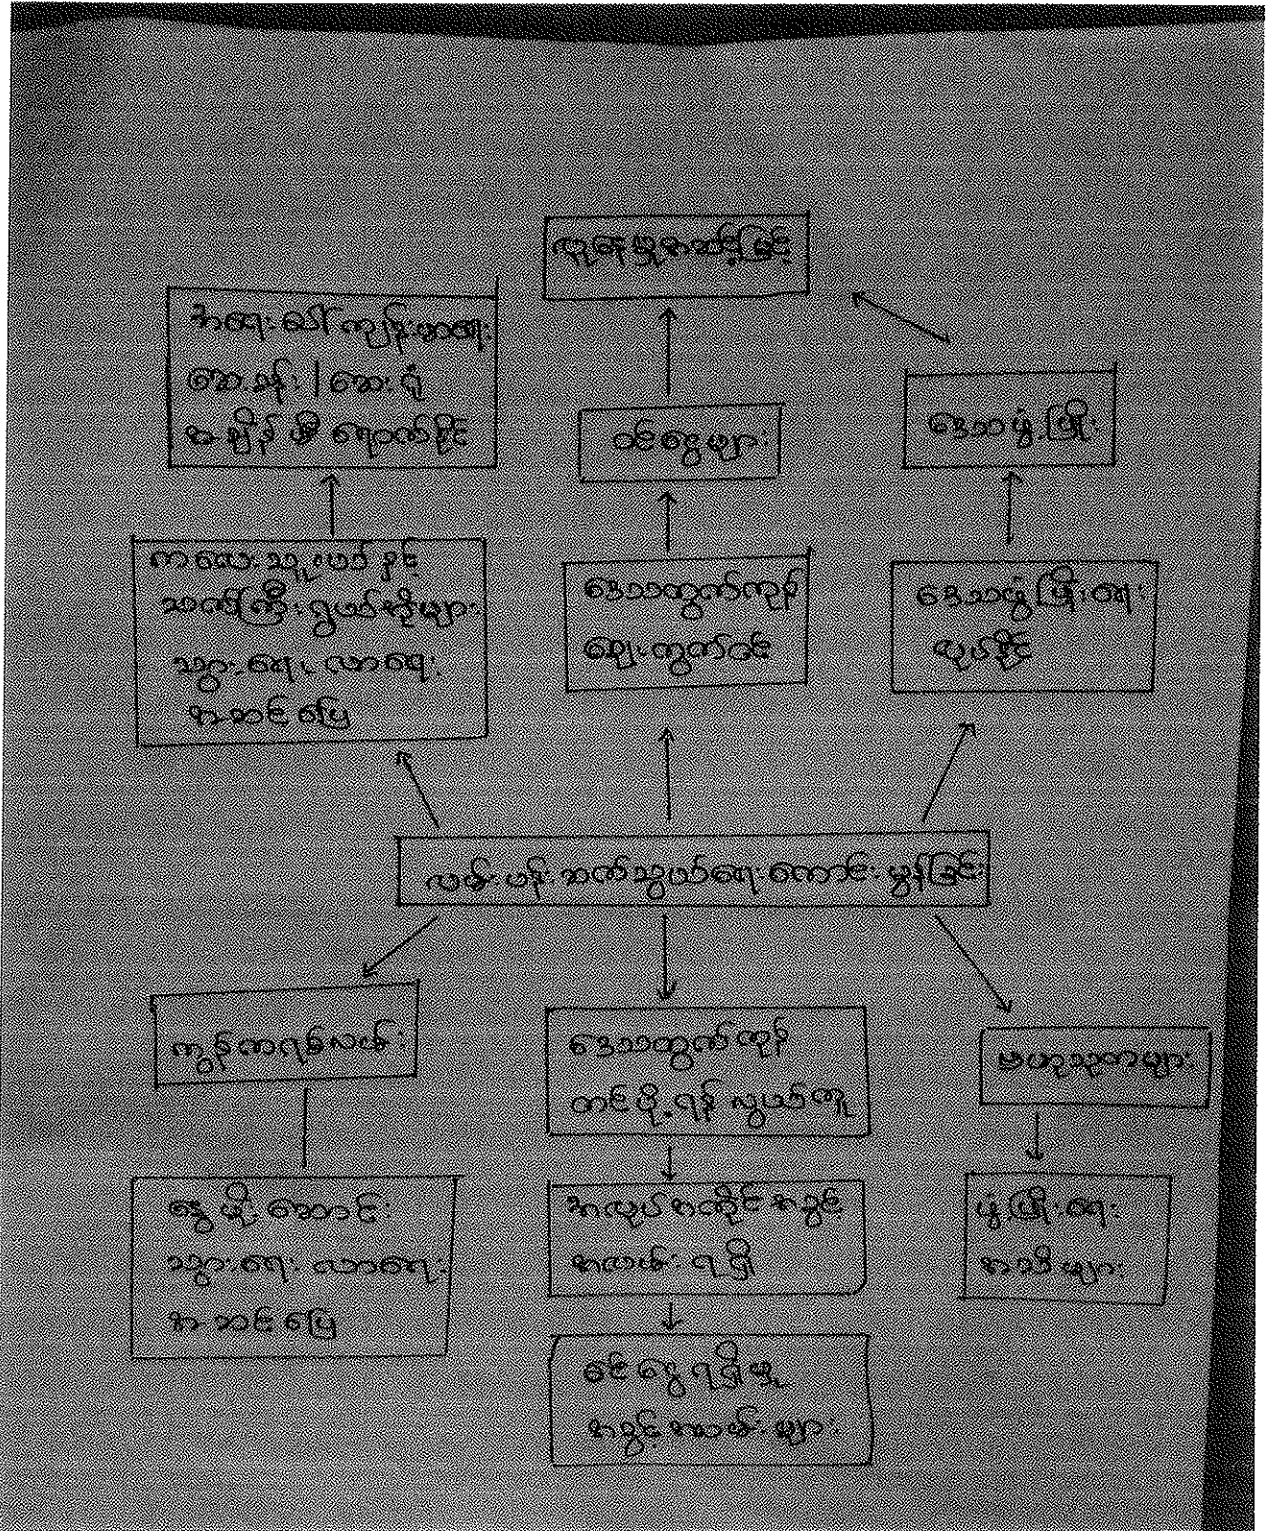 လူနေမှုအဆင့်မြင့်
အရေးပေါ်ကျန်းမာရေး
ဆေးခန်း | ဆေးရုံ
အချိန်မီ ရောက်နိုင်
ဝင်ငွေများ
ဒေသဖွံ့ဖြိုး
ကလေးသူငယ်နှင့်
သက်ကြီးရွယ်အိုများ
သွားရေး လာရေး
အဆင်ပြေ
ဒေသထွက်ကုန်
ဈေးကွက်ဝင်
ဒေသဖွံ့ဖြိုးရေး
လုပ်နိုင်
လမ်းပန်းဆက်သွယ်ရေးကောင်းမွန်ခြင်း
ကွန်ကရစ်လမ်း
ဒေသထွက်ကုန်
တင်ပို့ရန် လွယ်ကူ
ဗဟုသုတများ
နွေ မိုး ဆောင်း
သွားရေး လာရေး
အဆင်ပြေ
အလုပ်အကိုင်အခွင့်
အလမ်းရရှိ
ဖွံ့ဖြိုးရေး
အသိများ
ဝင်ငွေရရှိမှု
အခွင့်အလမ်းများ